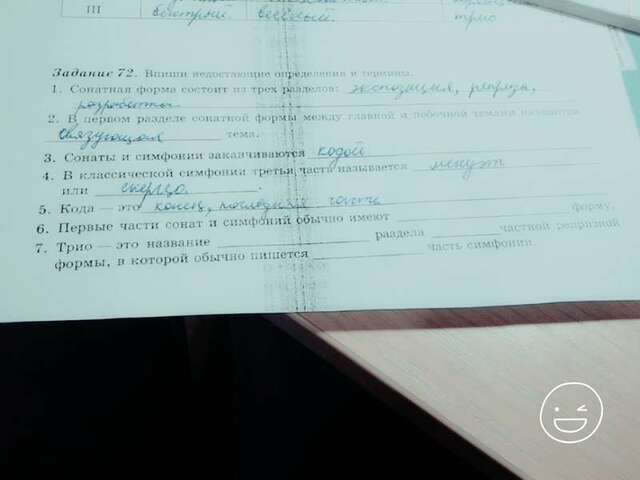 III быстрый. весёлый. трио
Задание 72. Впиши недостающие определения и термины.
1. Сонатная форма состоит из трех разделов: экспозиция, реприза,
разработка
2. В первом разделе сонатной формы между главной и побочной темами находится
связующая тема.
3. Сонаты и симфонии заканчиваются кодой
4. В классической симфонии третья часть называется менуэт
или скерцо.
5. Кода — это конец, последняя часть
6. Первые части сонат и симфоний обычно имеют форму.
7. Трио — это название раздела частной репризной
формы, в которой обычно пишется часть симфонии.